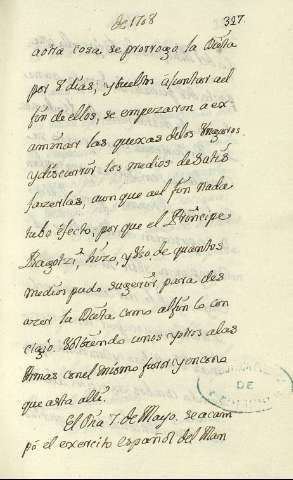 de 1708 327.
aotra cosa. se prorrogo la Dieta
por 8 dias, y bueltos a juntar ael
fin de ellos, se empezaron a ex-
aminar las quexas delos Ungaros
y discurrir los medios de satis
fazerlas, aunque ael fin nada
tubo efecto, por que el Principe
Ragotzi, hizo, y dio, de quantos
medios pudo sugerir para des
azer la Dieta como alfin lo con
siguio. bolbiendo unos y otros alas
Armas con el mismo furor y encono
que asta alli.
El Dia 7 de Mayo. se acam
pó el exercito español del Man
DE